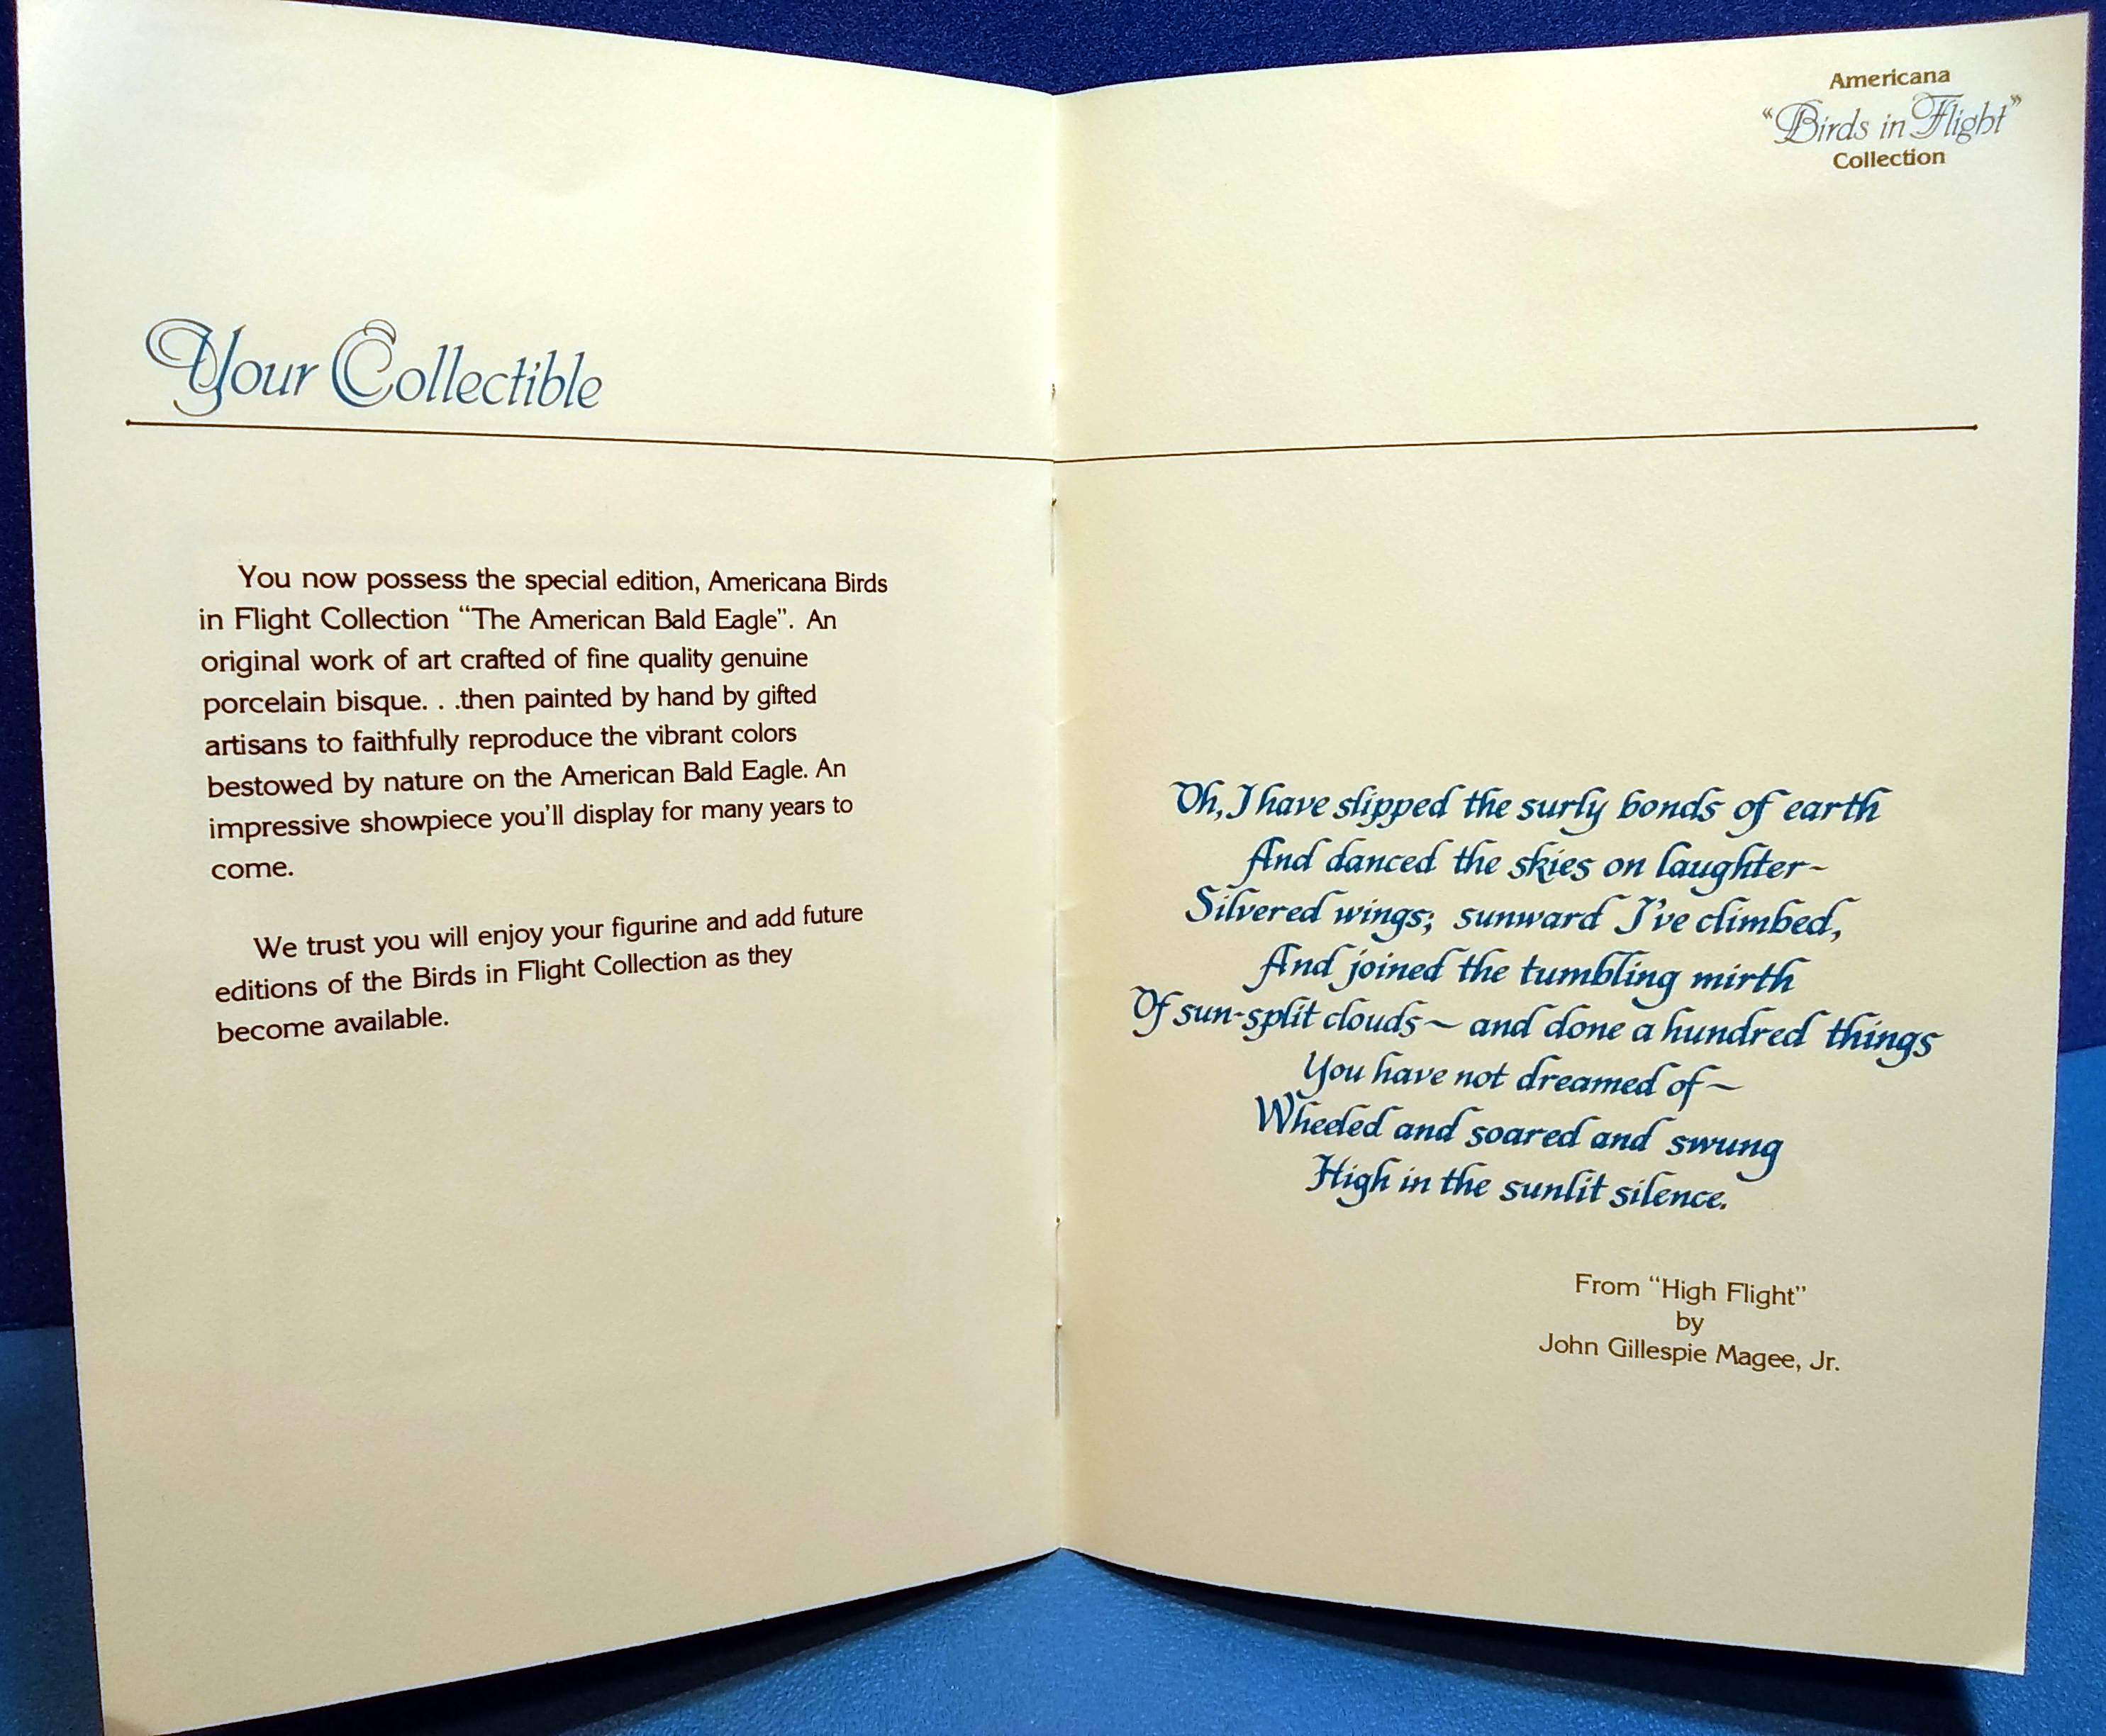 Your Collectible
You now possess the special edition, Americana Birds
in Flight Collection “The American Bald Eagle”. An
original work of art crafted of fine quality genuine
porcelain bisque. . .then painted by hand by gifted
artisans to faithfully reproduce the vibrant colors
bestowed by nature on the American Bald Eagle. An
impressive showpiece you'll display for many years to
come.
We trust you will enjoy your figurine and add future
editions of the Birds in Flight Collection as they
become available.
Americana
“Birds in Flight”
Collection
Oh, I have slipped the surly bonds of earth
And danced the skies on laughter~
Silvered wings; sunward I've climbed,
And joined the tumbling mirth
Of sun-split clouds~ and done a hundred things
You have not dreamed of~
Wheeled and soared and swung
High in the sunlit silence.
From “High Flight”
by
John Gillespie Magee, Jr.